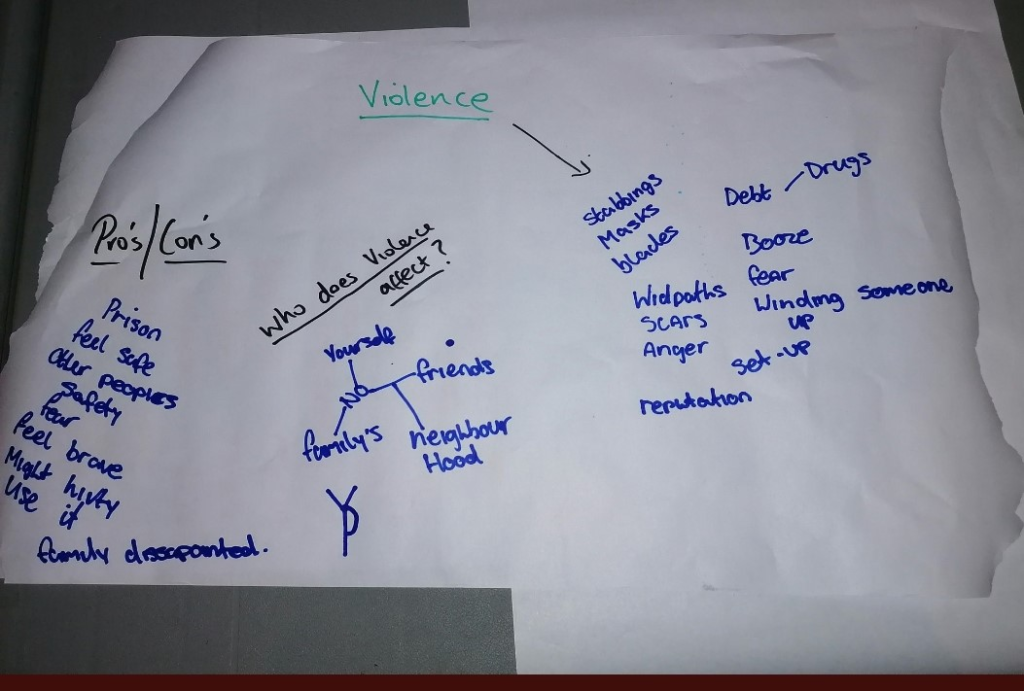 Violence
Pro's/Con's
Prison
feel safe
Other peoples
safety
fear
feel brave
Might
Use it
family dissapointed.
Who does Violence
affect?
Yourself
NO
friends
family's
neighbour
Hood
Stabbings
Masks
blades
Widpaths
SCARS
Anger
reputation
Debt
Drugs
Booze
fear
Winding someone
UP
set-up